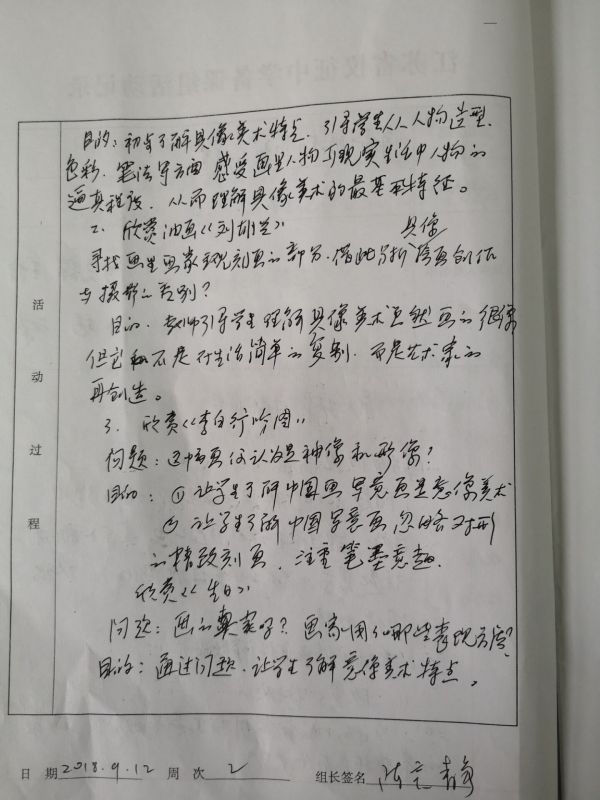 目的：初步了解具像美术特点，引导学生从人物造型、
色彩、笔法等方面感受画里人物与现实生活中人物的
逼真程度，从而理解具像美术的最基本特征。
2、欣赏油画《刘胡兰》
具像
寻找画里画家表现刻画的部分，借此分析绘画创作
与摄影的区别？
目的：教师引导学生理解具像美术虽然画的很像
但它不是对生活简单的复制，而是艺术家的
再创造。
3、欣赏《李白行吟图》
问题：这幅画你认为是神像和形像？
目的：①让学生了解中国画写意画是意像美术
②让学生了解中国写意画忽略对形
的精致刻画，注重笔墨意趣。
欣赏《生日》
问题：画的好？画家用了哪些表现方法？
目的：通过问题，让学生了解意像美术特点。
活动过程
日期 2018.9.12 周次 2 组长签名